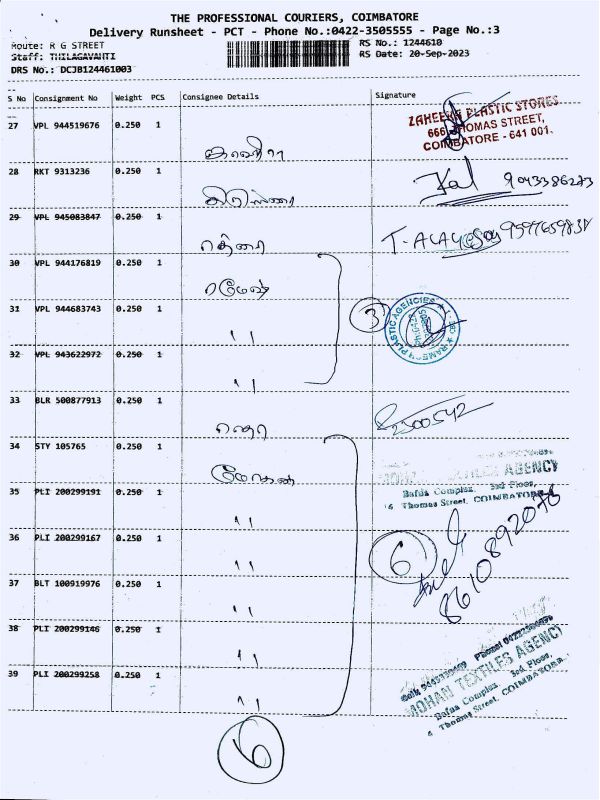 THE PROFESSIONAL COURIERS, COIMBATORE
Delivery Runsheet - PCT - Phone No.:0422-3505555 - Page No.:3
Route: R G STREET
RS No.: 1244610
Staff: THILAGAVAHTI
RS Date: 20-Sep-2023
DRS No.: DCJB124461003
S No Consignment No Weight PCS Consignee Details Signature
27 VPL 944519676 0.250 1
ZAHEERA PLASTIC STORES
666, THOMAS STREET,
COIMBATORE - 641 001.
28 RKT 9313236 0.250 1
29 VPL 945083847 0.250 1
30 VPL 944176819 0.250 1
ரமேஷ்
31 VPL 944683743 0.250 1
" 3
RAMESH PLASTIC AGENCIES
32 VPL 943622972 0.250 1
"
33 BLR 500877913 0.250 1
2300542
34 STY 105765 0.250 1
மோகன்
MOHAN TEXTILES AGENCY
Bafna Complex, 3rd Floor,
6 Thomas Street, COIMBATORE
35 PLI 200299191 0.250 1
"
36 PLI 200299167 0.250 1
" 6
8610892076
37 BLT 100919976 0.250 1
"
38 PLI 200299146 0.250 1
"
39 PLI 200299258 0.250 1
"
MOHAN TEXTILES AGENCY
Bafna Complex, 3rd Floor,
6 Thomas Street, COIMBATORE
6